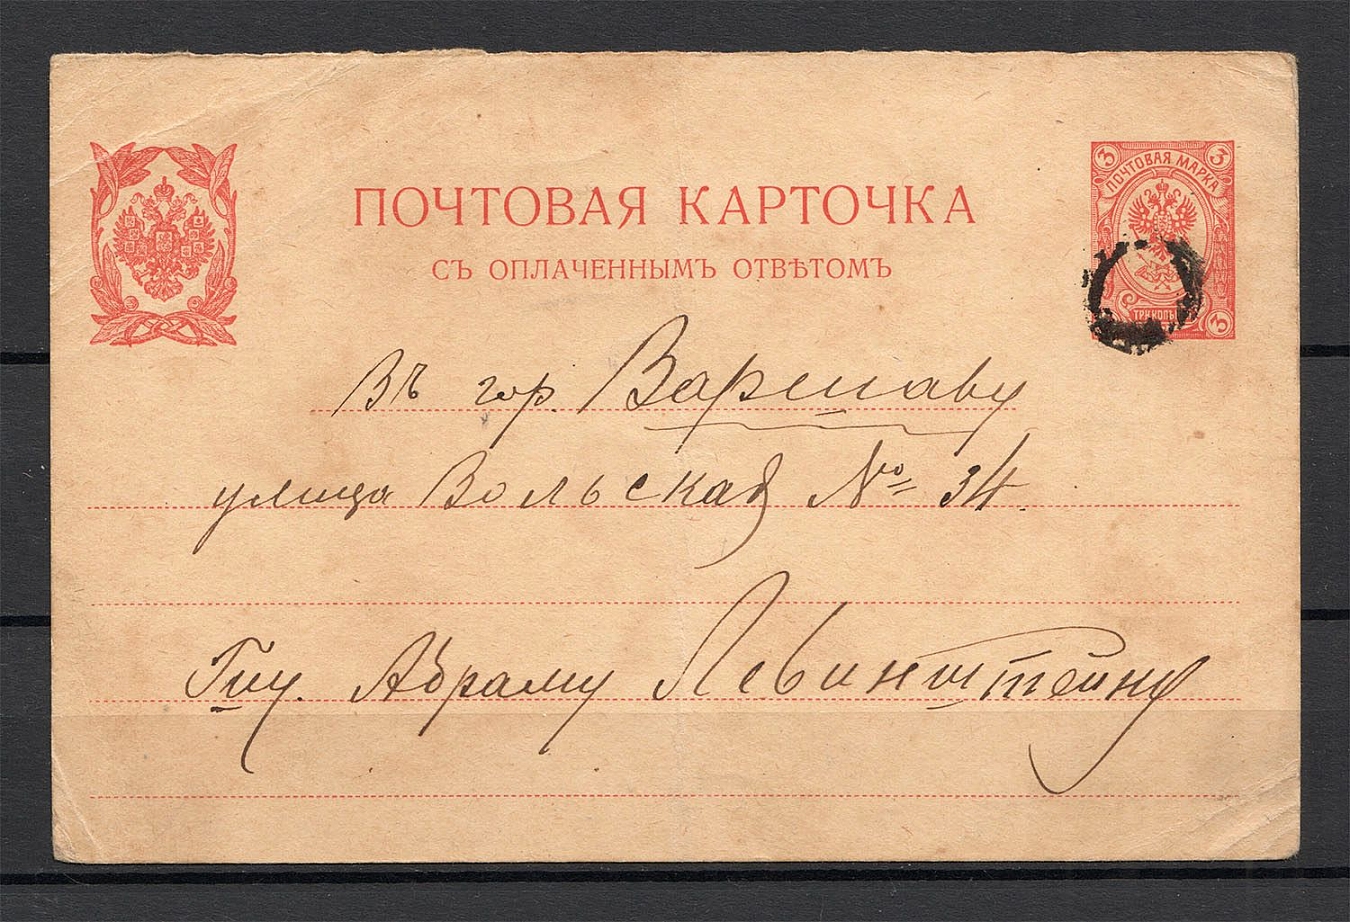 ПОЧТОВАЯ КАРТОЧКА
СЪ ОПЛАЧЕННЫМЪ ОТВѢТОМЪ
3 3
ПОЧТОВАЯ МАРКА
ТРИ КОП.
3
Въ гор. Варшаву
улица Вольская № 34
Абраму Левинштейну